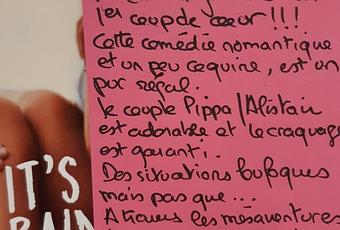 1er coup de cœur !!!
Cette comédie romantique
et un peu coquine, est un
pur régal.
le couple Pippa / Alistair
est adorable et le craquage
est garanti.
Des situations loufoques
mais pas que...
A travers les mésaventures
IT'S